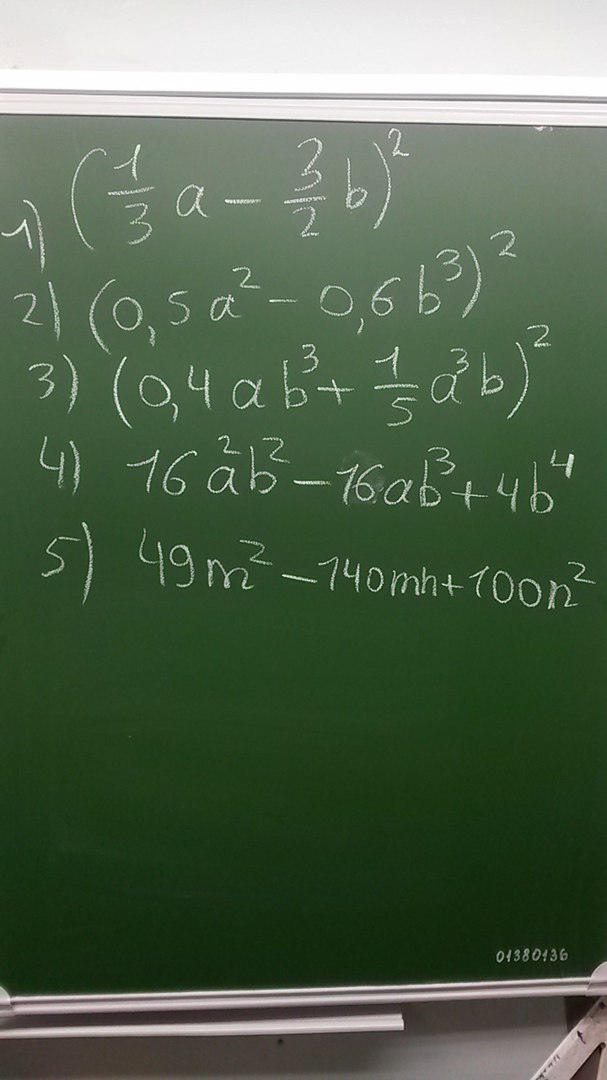 1) (1/3 a - 3/2 b)²
2) (0,5a² - 0,6b³)²
3) (0,4ab³ + 1/5 a³b)²
4) 16a²b² - 16ab³ + 4b⁴
5) 49m² - 140mn + 100n²
01380136